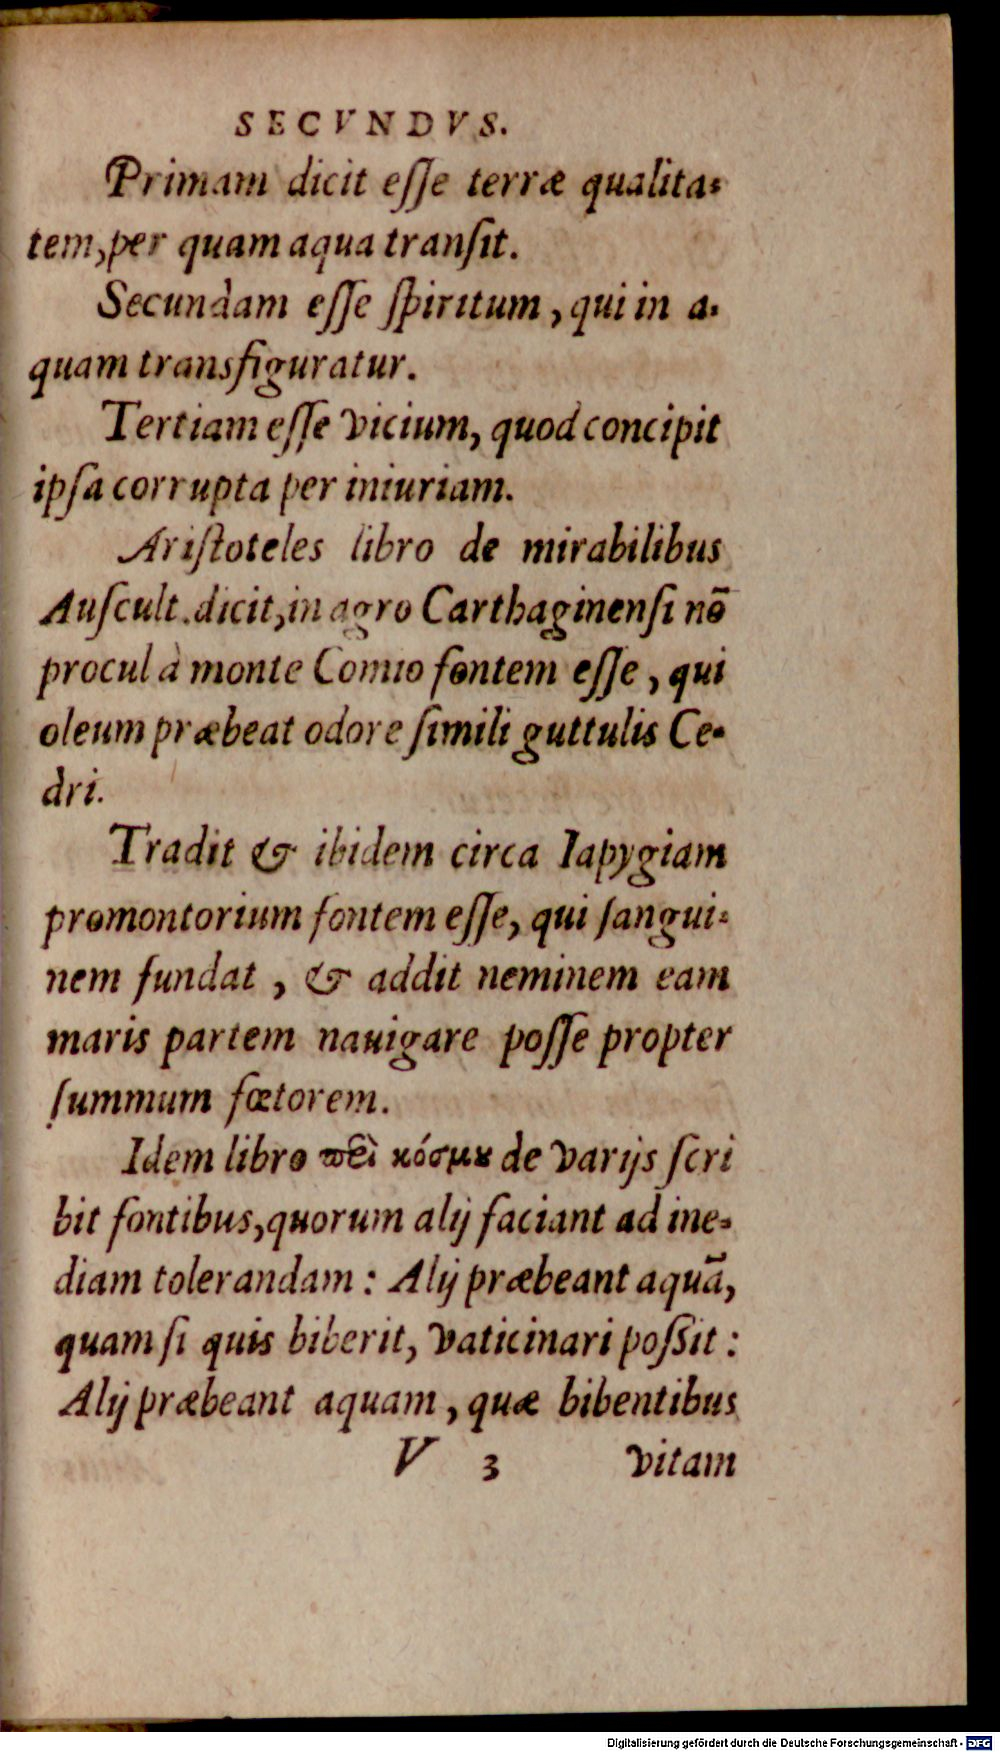 SECVNDVS.
Primam dicit eſſe terræ qualita-
tem, per quam aqua tranſit.
Secundam eſſe ſpiritum, qui in a-
quam transfiguratur.
Tertiam eſſe vicium, quod concipit
ipſa corrupta per iniuriam.
Ariſtoteles libro de mirabilibus
Auſcult. dicit, in agro Carthaginenſi nō
procul à monte Comio fontem eſſe, qui
oleum præbeat odore ſimili guttulis Ce-
dri.
Tradit & ibidem circa Iapygiam
promontorium fontem eſſe, qui ſangui-
nem fundat, & addit neminem eam
maris partem nauigare poſſe propter
ſummum fœtorem.
Idem libro πεὶ κόσμȣ de varijs ſcri
bit fontibus, quorum alij faciant ad ine-
diam tolerandam: Alij præbeant aquā,
quam ſi quis biberit, vaticinari poſsit:
Alij præbeant aquam, quæ bibentibus
V 3 vitam
Digitalisierung gefördert durch die Deutsche Forschungsgemeinschaft - DFG